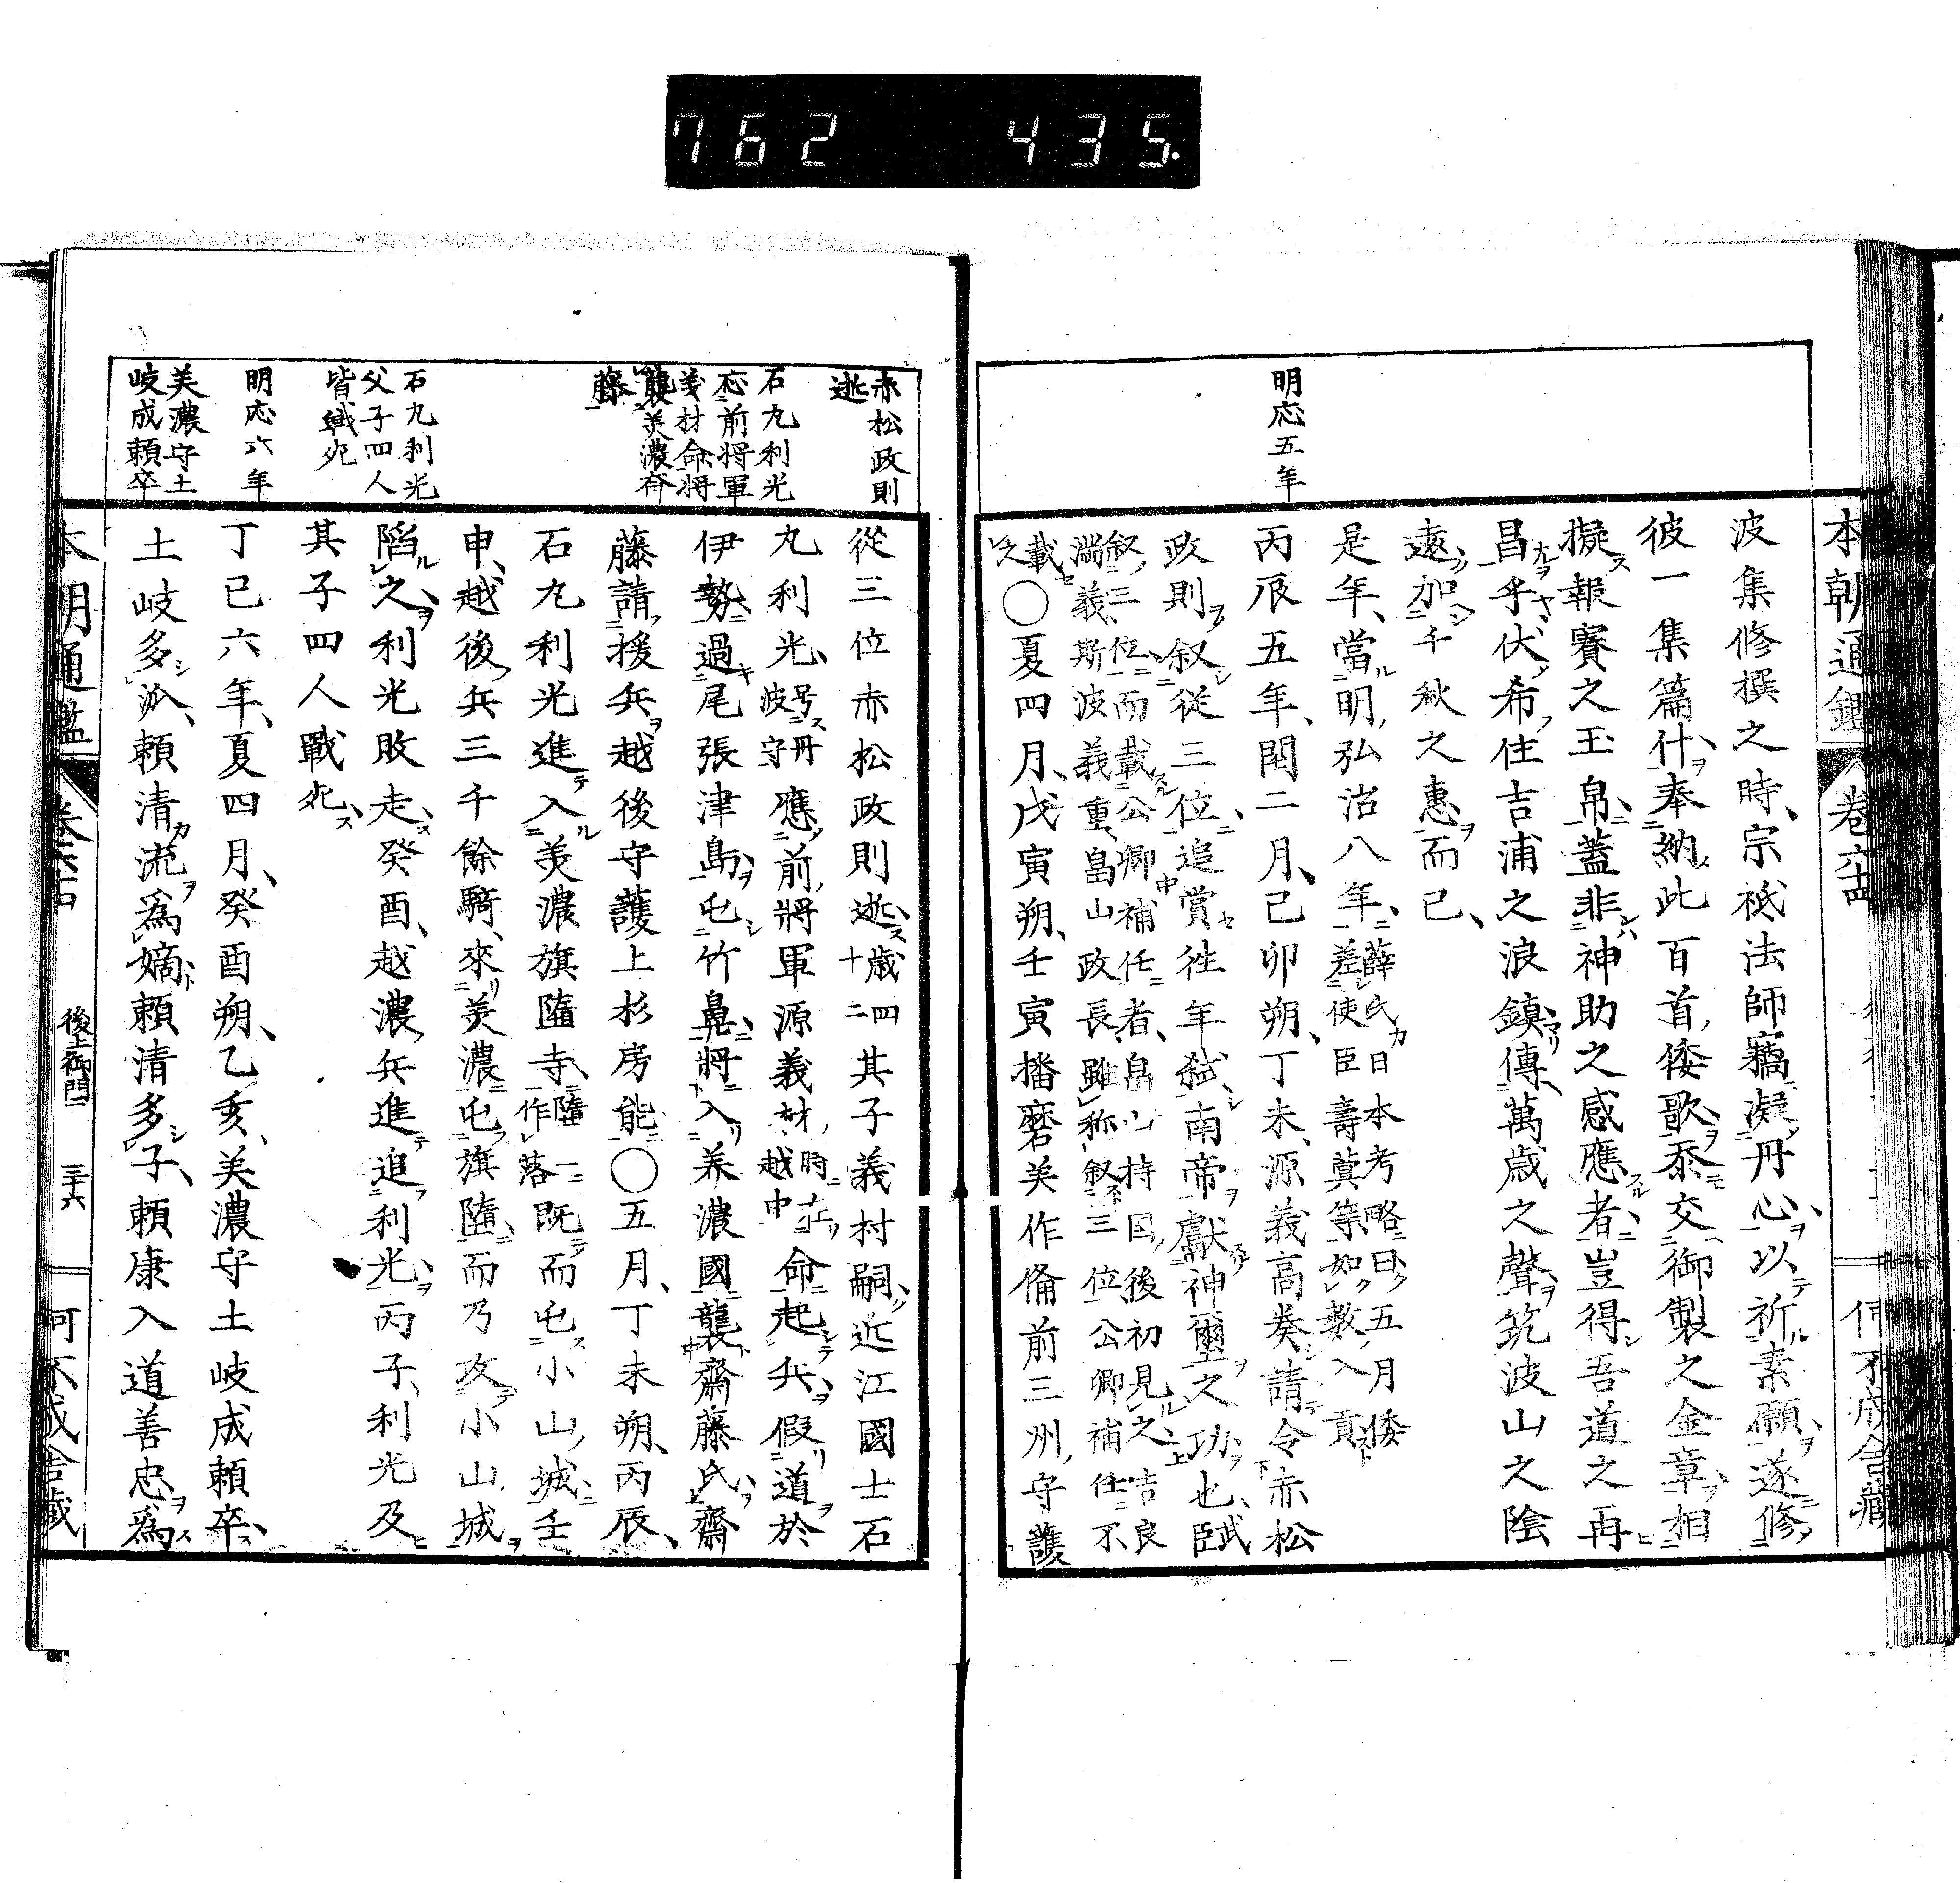 762 435.
本朝通鑑 卷六十四
明応五年
波集修撰之時、宗祇法師竊凝丹心、以祈素願、遂修
彼一集篇什、奉納此百首倭歌、忝交御製之金章、相
擬報賽之玉帛、蓋非神助之感應者、豈得吾道之再
昌乎、伏希住吉浦之浪、鎮傳萬歳之聲、筑波山之陰
遠加千秋之惠而已、
是年、當明弘治八年、薛氏日本考略曰、五月倭
差使臣壽蓂等如數入貢
丙辰五年、閏二月、己卯朔、丁未、源義高奏請令赤松
政則叙從三位、追賞往年弑南帝獻神璽之功也、武臣
叙三位、而載公卿補任者、畠山持国後初見之、吉良
満義、斯波義重、畠山政長、雖称叙三位、公卿補任不
載之〇夏四月、戊寅朔、壬寅播磨美作備前三州守護
赤松政則
逝
石丸利光
応前将軍
義材命将
襲美濃斎
藤
石丸利光
父子四人
皆戰死
明応六年
美濃守土
岐成頼卒
從三位赤松政則逝、歳四十二其子義村嗣、近江國士石
丸利光、号丹波守應前將軍源義材、時在越中命起兵、假道於
伊勢、過尾張津島、屯竹鼻、將入美濃國襲齋藤氏、齋
藤請援兵越後守護上杉房能〇五月、丁未朔、丙辰、
石丸利光進入美濃旗隨寺、隨一作落既而屯小山城、壬
申、越後兵三千餘騎、來美濃屯旗隨、而乃攻小山城
陷之、利光敗走、癸酉、越濃兵進追利光、丙子、利光及
其子四人戰死、
丁巳六年、夏四月、癸酉朔、乙亥、美濃守土岐成頼卒、
土岐多派、頼清流爲嫡、頼清多子、頼康入道善忠爲
本朝通鑑 卷六十四 後土御門二 三十六